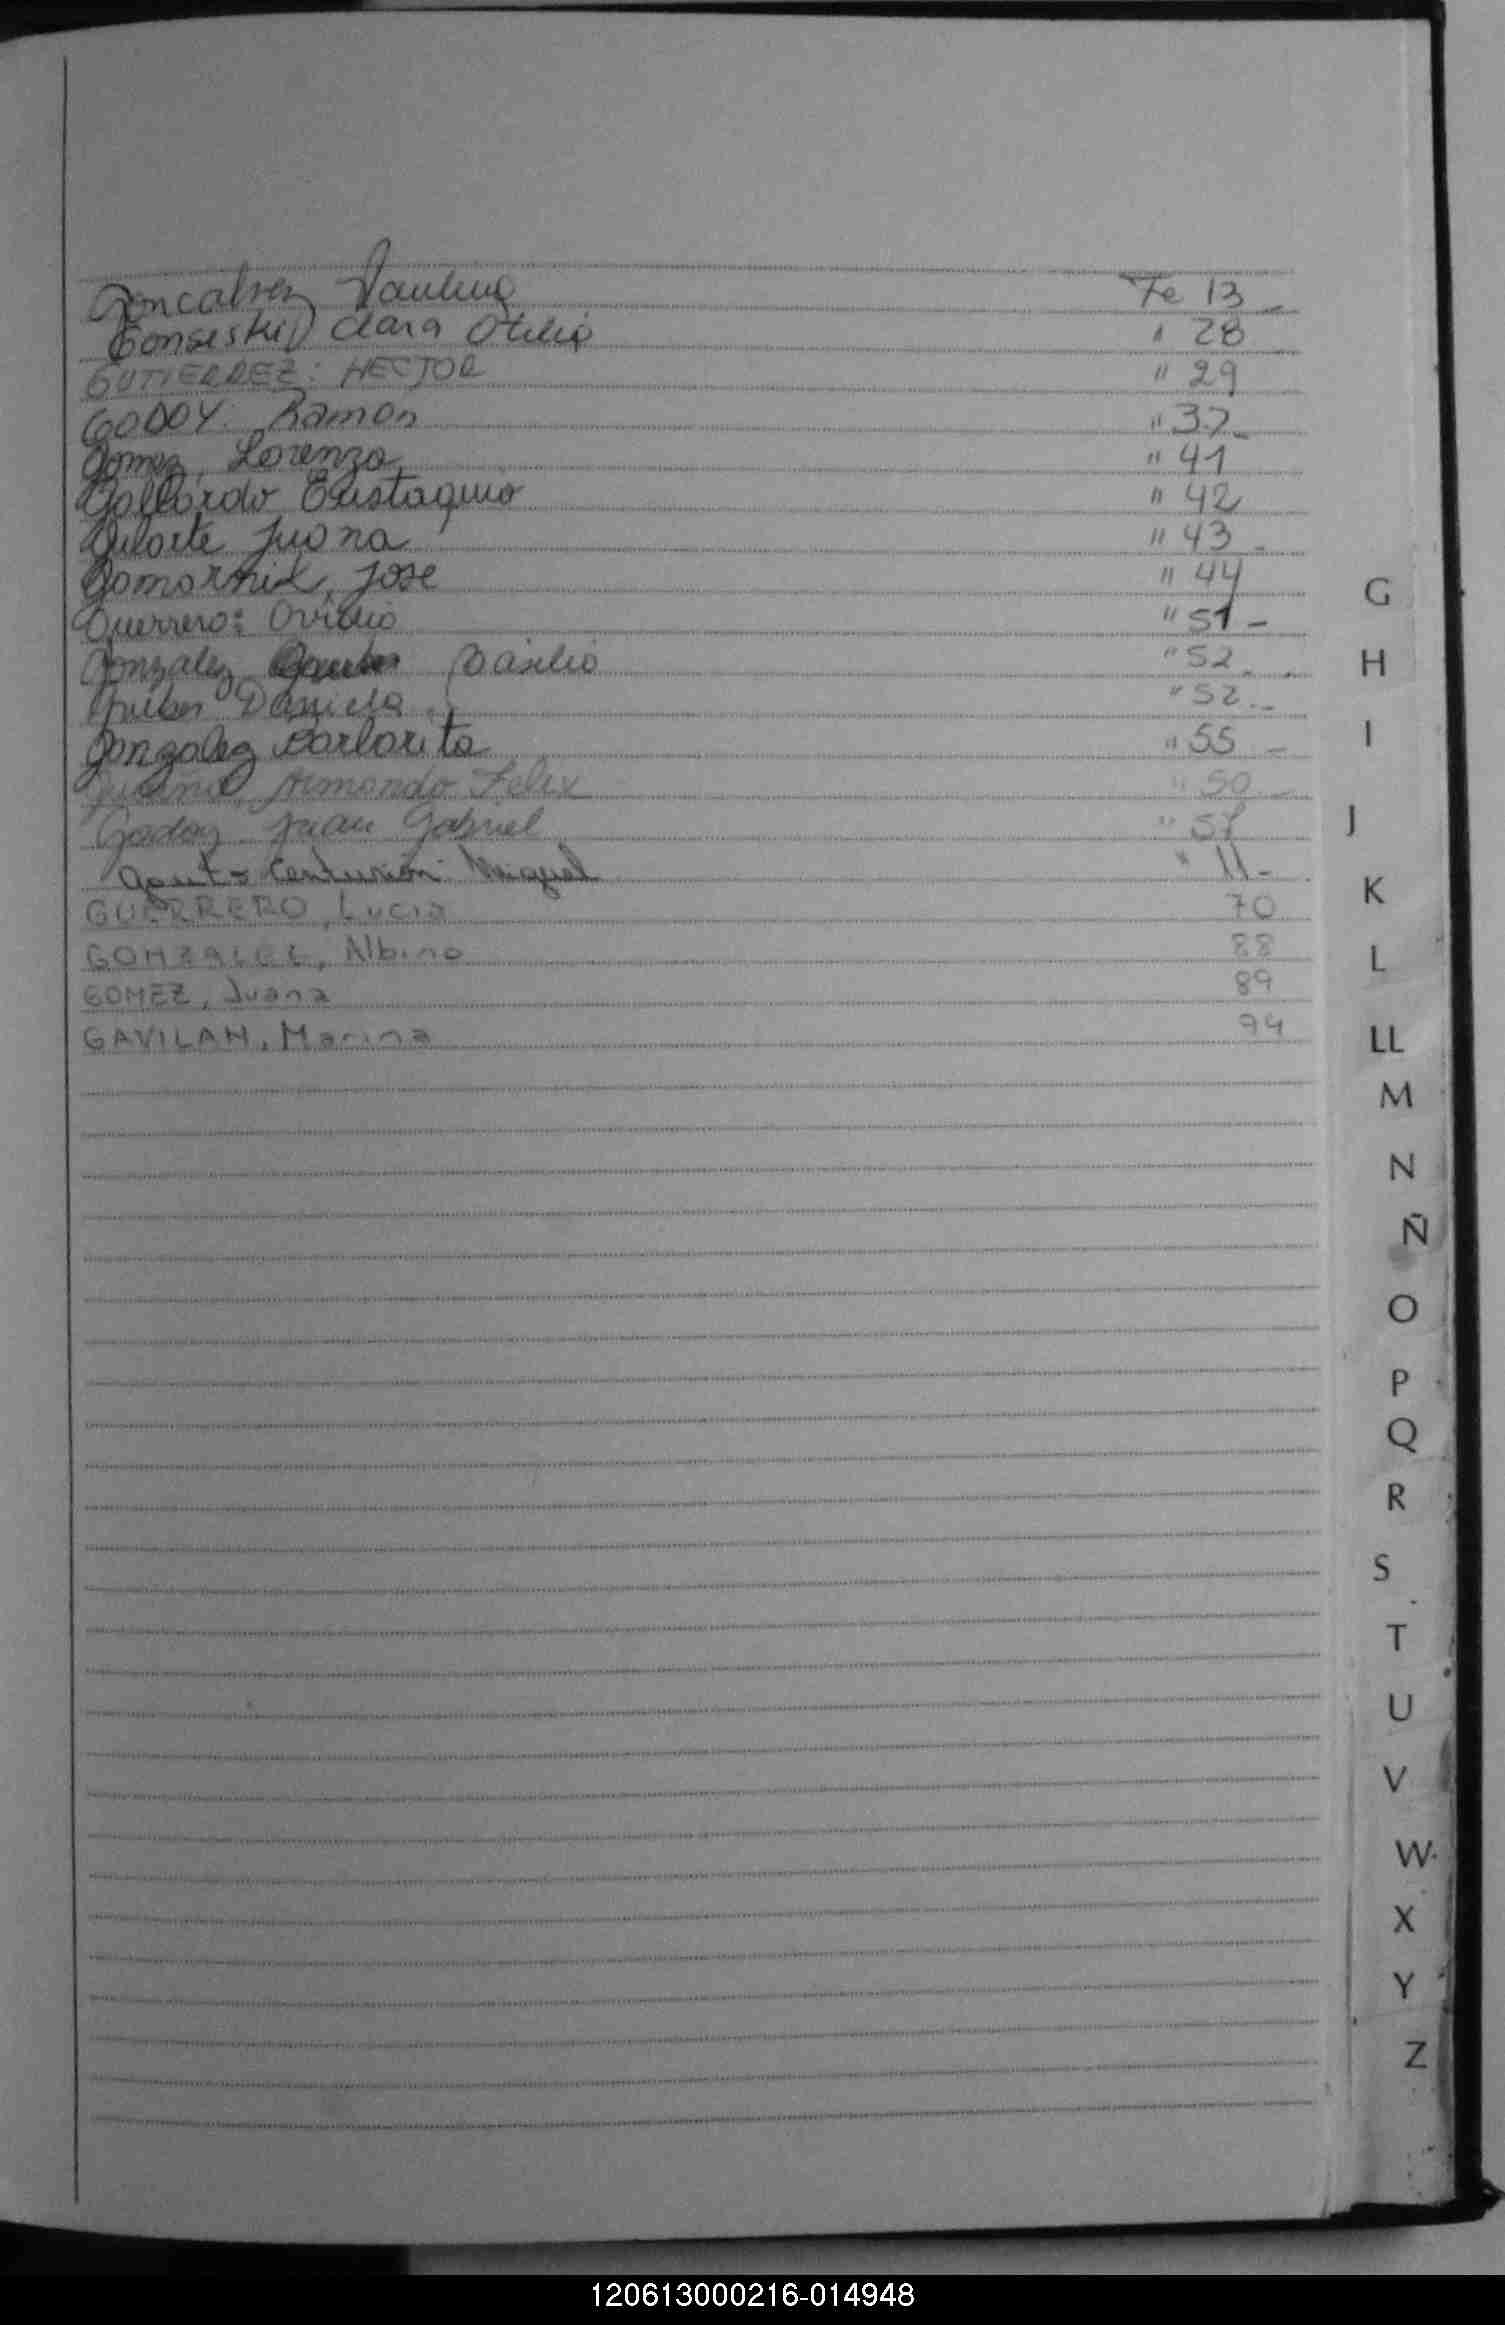 Goncalvez Paulina Fe 13
Gonseski Clara Otilia " 28
GUTIERREZ: HECTOR " 29
GODOY. Ramon " 37
Gomez, Lorenzo " 41
Gallardo Eustaquio " 42
Juana " 43
José " 44
Guerrero: Ovidio " 51
Gonzalez Basilio " 52
Daniela " 52
Gonzalez Marlarita " 55
Armando Felix " 50
Godoy Juan Gabriel " 57
Centurión Miguel " 11
GUERRERO, Lucia 70
GONZALEZ, Albino 88
GOMEZ, Juana 89
GAVILAN, Marina 94
G
H
I
J
K
L
LL
M
N
Ñ
O
P
Q
R
S
T
U
V
W
X
Y
Z
120613000216-014948